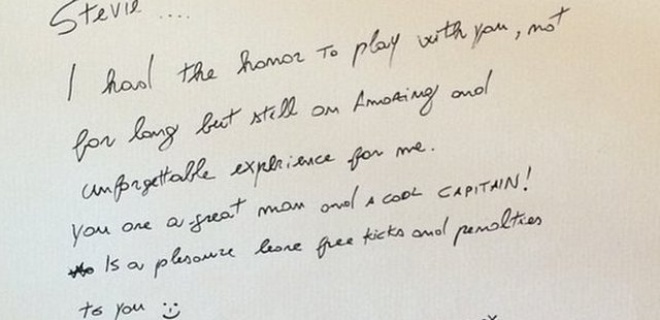 Stevie ....
I had the honor To play with you, not
for long but still an Amazing and
unforgettable experience for me.
you are a great man and A COOL CAPITAIN!
Is a pleasure leave free kicks and penalties
to you :)